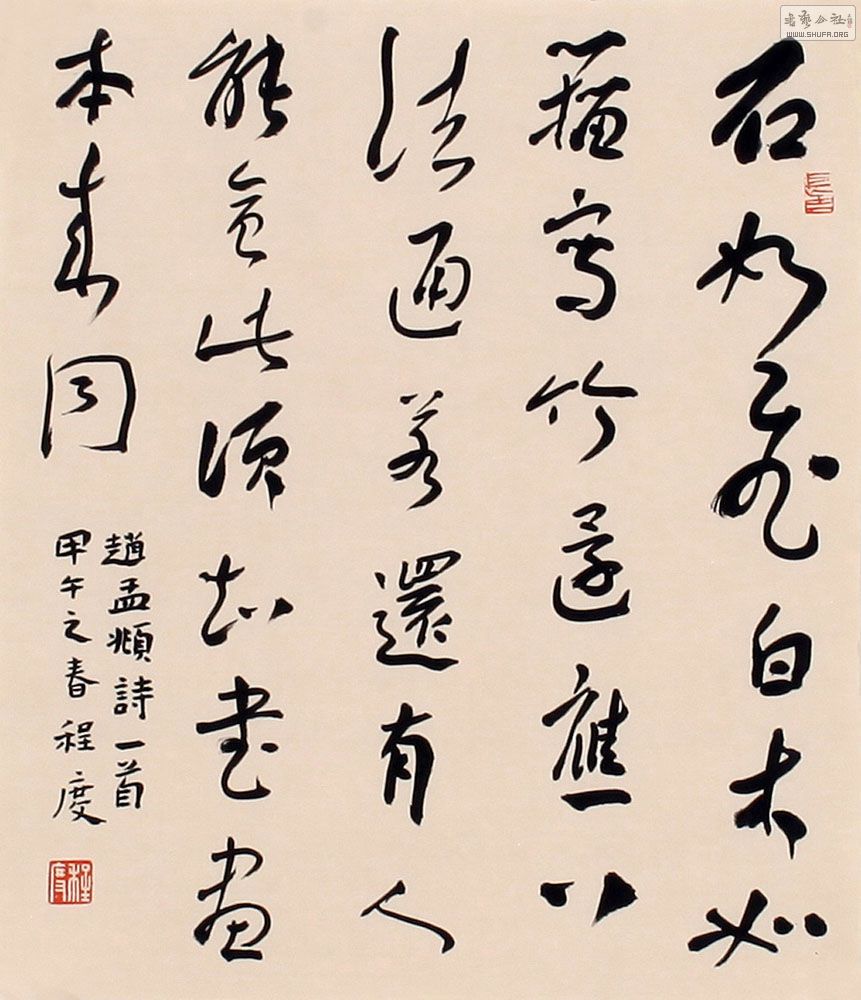 石如飛白木如
籀寫竹還應八
法通若還有人
能會此須知書畫
本來同
趙孟頫詩一首
甲午之春程度
程度
書藝公社
WWW.SHUFA.ORG